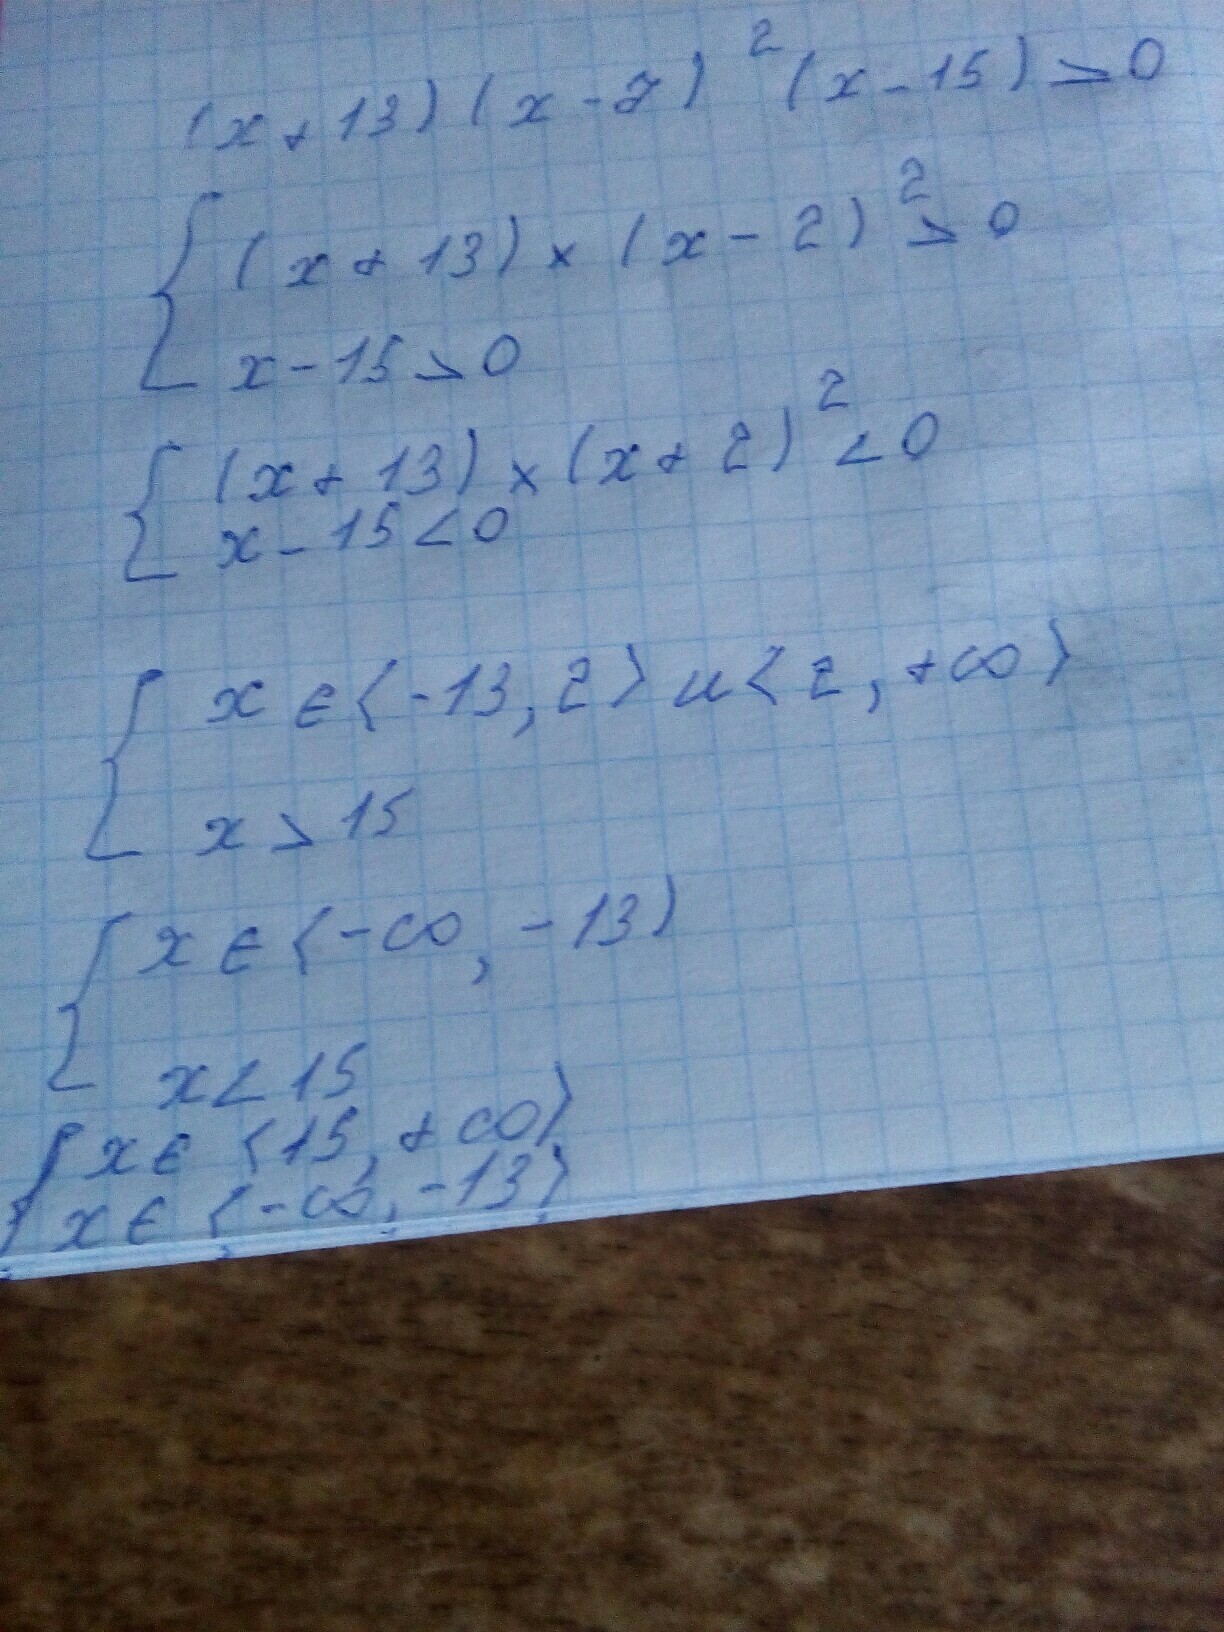 (x+13)(x-7)²(x-15)>0
{(x+13)×(x-2)²>0
x-15>0
{(x+13)×(x+2)²<0
x-15<0
{x∈⟨-13,2⟩u⟨2,+∞⟩
x>15
{x∈⟨-∞,-13)
x<15
{x∈⟨15,+∞⟩
x∈⟨-∞,-13⟩